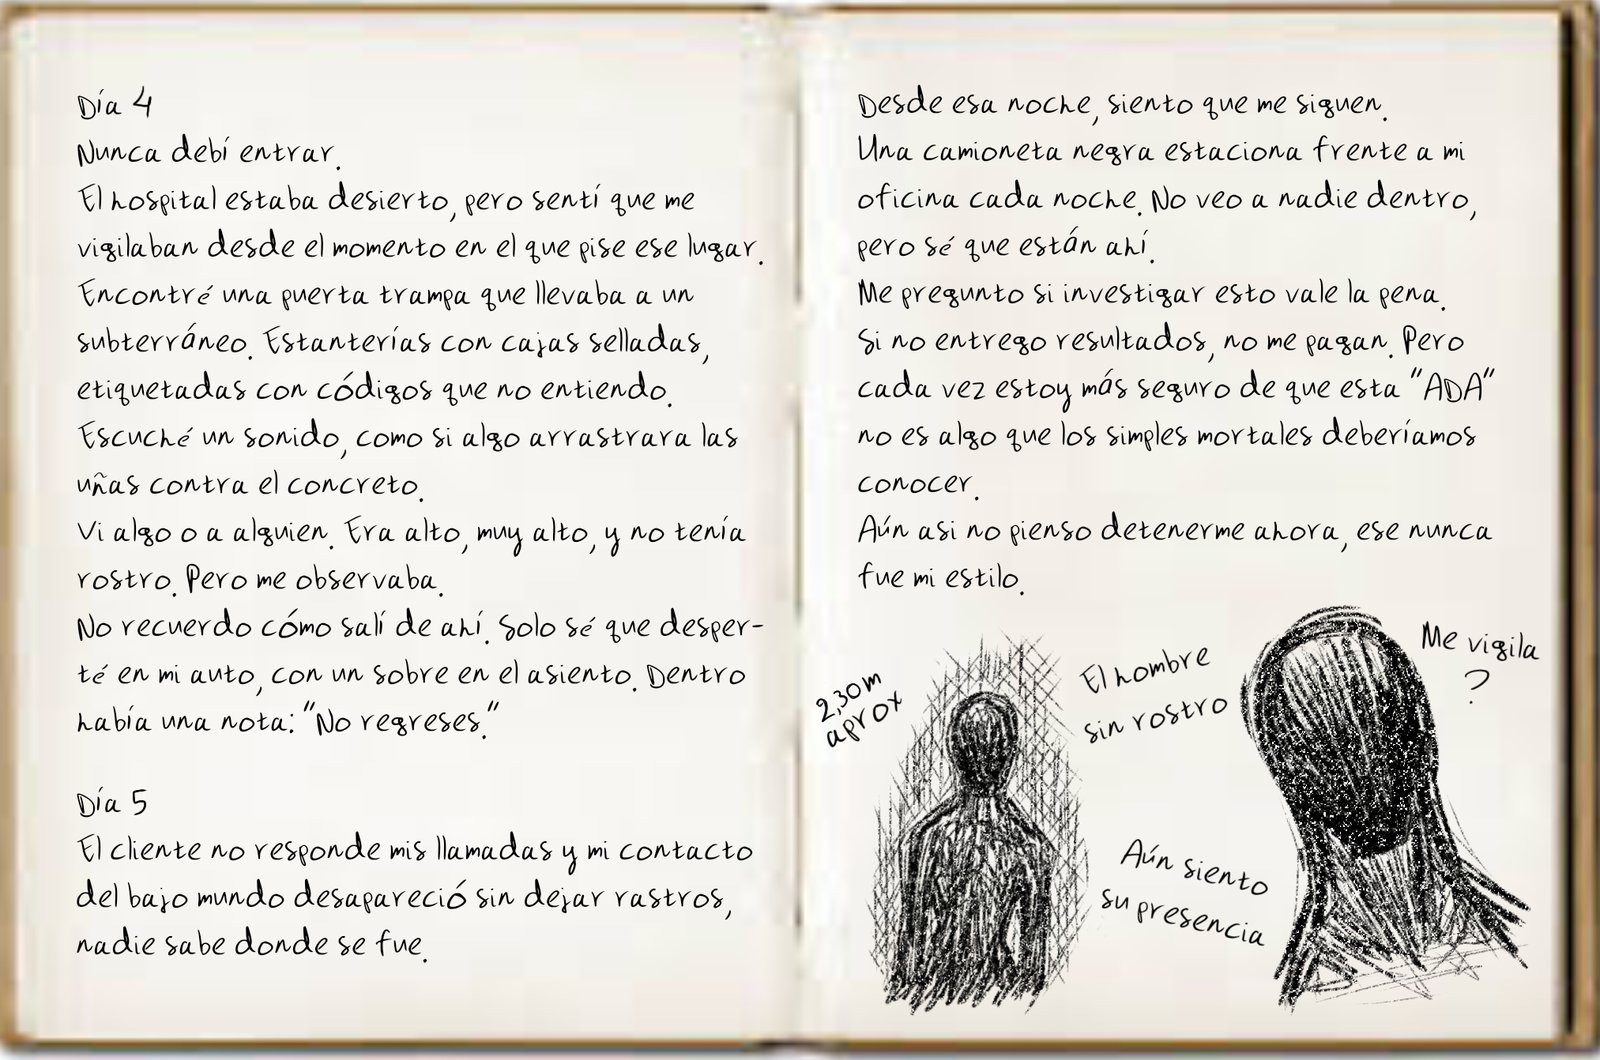 Día 4
Nunca debí entrar.
El hospital estaba desierto, pero sentí que me
vigilaban desde el momento en el que pise ese lugar.
Encontré una puerta trampa que llevaba a un
subterráneo. Estanterías con cajas selladas,
etiquetadas con códigos que no entiendo.
Escuché un sonido, como si algo arrastrara las
uñas contra el concreto.
Vi algo o a alguien. Era alto, muy alto, y no tenía
rostro. Pero me observaba.
No recuerdo cómo salí de ahí. Solo sé que desper-
té en mi auto, con un sobre en el asiento. Dentro
había una nota: "No regreses."
Día 5
El cliente no responde mis llamadas y mi contacto
del bajo mundo desapareció sin dejar rastros,
nadie sabe donde se fue.
Desde esa noche, siento que me siguen.
Una camioneta negra estaciona frente a mi
oficina cada noche. No veo a nadie dentro,
pero sé que están ahí.
Me pregunto si investigar esto vale la pena.
Si no entrego resultados, no me pagan. Pero
cada vez estoy más seguro de que esta "ADA"
no es algo que los simples mortales deberíamos
conocer.
Aún asi no pienso detenerme ahora, ese nunca
fue mi estilo.
2,30 m
aprox
El hombre
sin rostro
Me vigila
?
Aún siento
su presencia